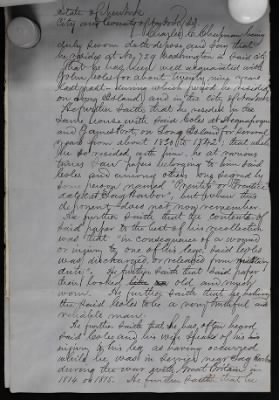 State of New York
City and County of New York } SS
Charles C. Chapman being
duly sworn doth depose and say that
he resides at No. 212 Washington in said city
That he has been well acquainted with
John Coles for about twenty nine years
last past during which period he resided
on Long Island and in the City of New York
He further saith that he resided in the
same house with said Coles at
and Jamesport, on Long Island for several
years from about 1836 to 1842; that while
he so resided with him he at various
times saw papers belonging to him said
Coles and among others one signed by
some person named
dated at Sag Harbor, but for whom this
deponent does not now remember.
He further saith that the contents of
said paper to the best of his recollection
was that in consequence of a wound
or injury to one of his legs said Coles
was discharged or released from military
duty. He further saith that said paper
then looked old and much
worn. He further saith that he believes
the said Coles to be a very truthful and
reliable man.
He further saith that he has often heard
said Coles and his wife speak of his
injury to his leg as having occurred
while he was in service near Sag Harbor
during the war with Great Britain in
1814 or 1815. He further saith that he